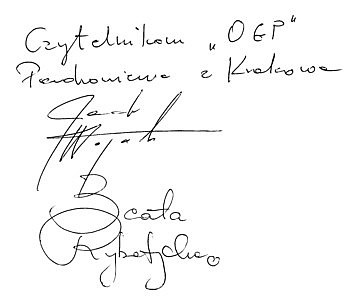 Czytelnikom „OGP"
Pozdrowienia z Krakowa
Jacek
Beata
Rybotycka